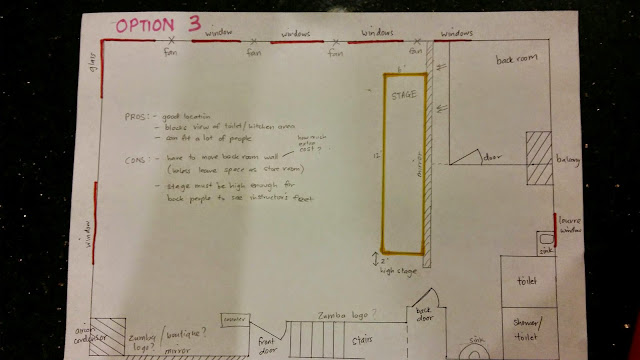 OPTION 3
window
windows
windows
windows
fan
fan
fan
fan
glass
back room
6'
STAGE
PROS: - good location
- blocks view of toilet/kitchen area
- can fit a lot of people
how much extra cost?
CONS: - have to move back room wall
(unless leave space as store room)
- stage must be high enough for
back people to see instructor's feet
12'
mirror
door
balcony
window
louvre
window
2'
high stage
sink
toilet
shower/
toilet
sink
back
door
Zumba logo?
counter
front
door
stairs
aircon
Zumba
logo?
boutique?
mirror